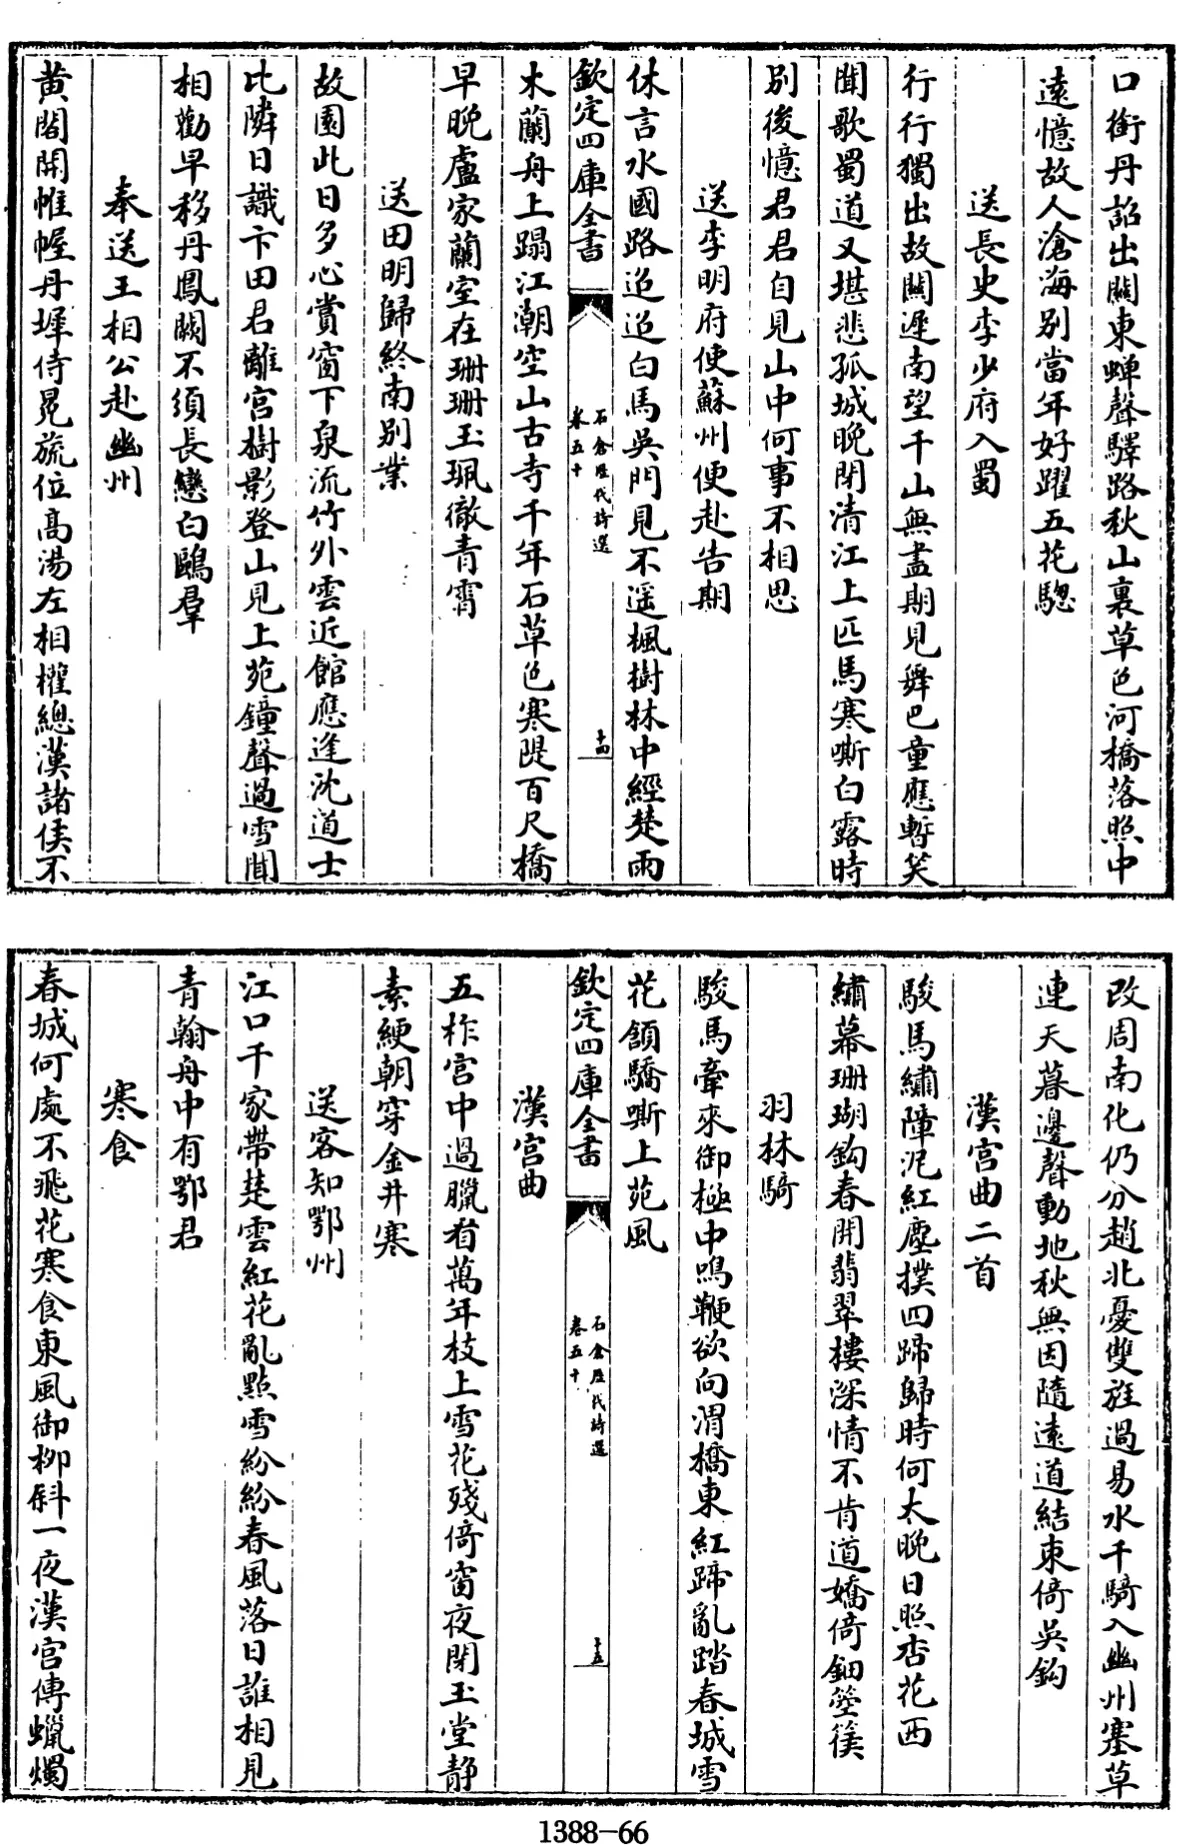 口銜丹詔出關東蟬聲驛路秋山裏草色河橋落照中
遠憶故人滄海别當年好躍五花驄
送長史李少府入蜀
行行獨出故關遲南望千山無盡期見舞巴童應暫笑
聞歌蜀道又堪悲孤城晚閉清江上匹馬寒嘶白露時
别後憶君君自見山中何事不相思
送李明府使蘇州便赴告期
休言水國路迢迢白馬吳門見不遥楓樹林中經楚雨
欽定四庫全書
石倉歷代詩選
卷五十
十四
木蘭舟上蹋江潮空山古寺千年石草色寒隄百尺橋
早晚盧家蘭室在珊珊玉珮徹青霄
送田明歸終南别業
故園此日多心賞窗下泉流竹外雲近館應逢沈道士
比隣日識卞田君離宮樹影登山見上苑鐘聲過雪聞
相勸早移丹鳳闕不須長戀白鷗羣
奉送王相公赴幽州
黄閣開帷幄丹墀侍冕旒位高湯左相權總漢諸侯不
改周南化仍分趙北憂雙旌過易水千騎入幽州塞草
連天暮邊聲動地秋無因隨遠道結束倚吳鈎
漢宫曲二首
駿馬繡障泥紅塵撲四蹄歸時何太晚日照杏花西
繡幕珊瑚鈎春開翡翠樓深情不肯道嬌倚鈿箜篌
羽林騎
駿馬牽來御柳中鳴鞭欲向渭橋東紅蹄亂踏春城雪
花頷驕嘶上苑風
欽定四庫全書
石倉歷代詩選
卷五十
十五
漢宫曲
五柞宫中過臘看萬年枝上雪花殘倚窗夜閉玉堂静
素綆朝穿金井寒
送客知鄂州
江口千家帶楚雲紅花亂點雪紛紛春風落日誰相見
青翰舟中有鄂君
寒食
春城何處不飛花寒食東風御柳斜一夜漢宫傳蠟燭
1388-66